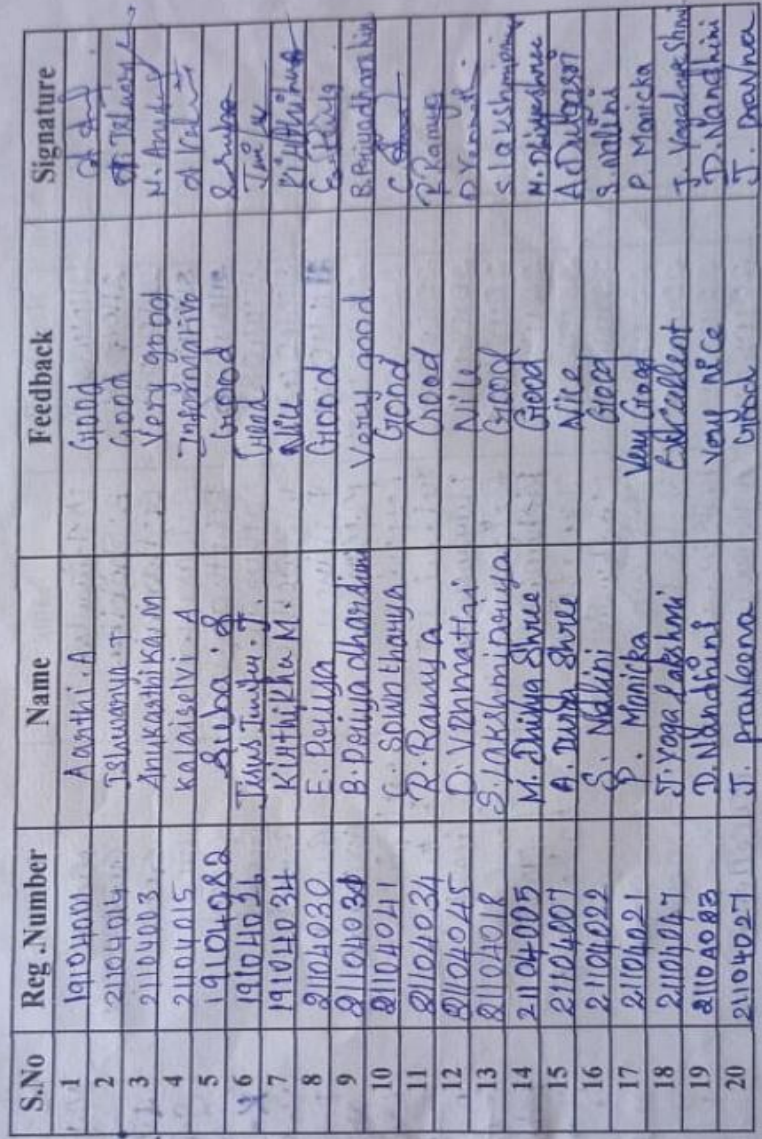 S.No Reg.Number Name Feedback Signature
1 19104001 Aarthi.A Good
2 21104014 Ishwarya.T Good
3 21104003 Anukarthika.M Very good M. Anuka
4 21104015 Kalaiselvi.A Informative
5 19104082 Suba.S Good S.Suba
6 19104026 Good
7 19104034 Kirthikha M. Nice
8 21104030 E. Priya Good E. Priya
9 B.Priyadharshini Very good B.Priyadharshini
10 21104041 C. Sountharya Good
11 21104034 R. Ramya Good R. Ramya
12 21104045 D. Venmathi Nice
13 21104018 S.lakshmipriya Good S lakshmipriya
14 21104005 M. Dhivya Shree Good M.Dhivyashree
15 21104007 A. Durga Shree Nice
16 21104022 S. Nalini Good S. Nalini
17 21104021 P. Monicka Very Good P. Monicka
18 21104047 J. Yogalakshmi Excellent J. Yogalakshmi
19 21104023 D. Nandhini very nice D. Nandhini
20 21104027 J. praveena Good